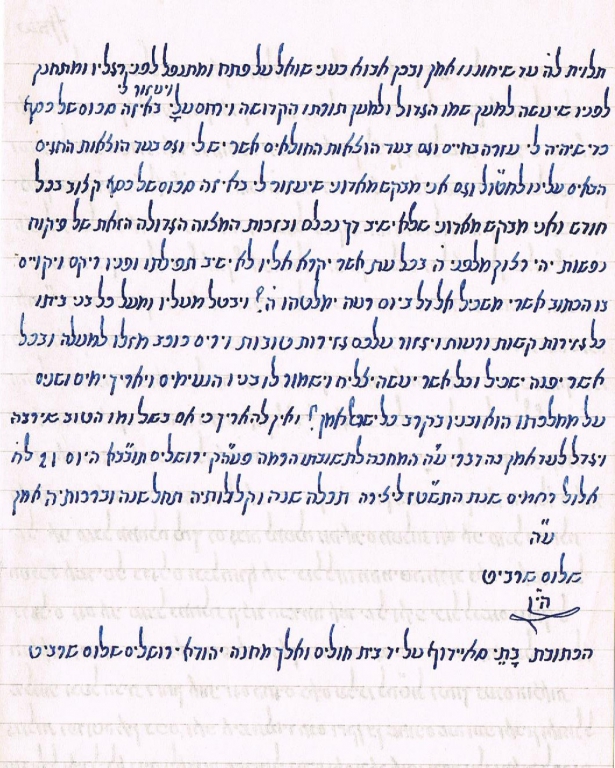 תלוית לה עד שיחוננו אמן ובכן אבוא כעני שואל על פתח ומתנפל לפני רגליו ומתחנן
ויעזור לי
לפניו שיעשה למען שמו הגדול ולמען תורתו הקדושה וירחם עלי באיזה סכום של כסף
כדי שיהיה לי עזרה בחיים וגם בעד הוצאות החולאים אשר יש לי וגם בעד הוצאות החגים
הבאים עלינו לטובה וגם אני מבקש מאדוני שיעזור לי באיזה סכום של כסף קצוב בכל
חודש ואני מבקש מאדוני שלא ישיב דך נכלם ובזכות המצוה הגדולה הזאת של פיקוח
נפשות יהי רצון מלפני ה בכל עת אשר יקרא אליו לא ישיב תפילתו ופניו ריקם ויקויים
בו הכתוב אשרי משכיל אל דל ביום רעה ימלטהו ה ויבטל מעליו ומעל כל בני ביתו
כל גזירות קשות ורעות ויגזור עליכם גזירות טובות וירים כוכב מזלו למעלה ובכל
אשר יפנה ישכיל וכל אשר יעשה יצליח וישמור לו בניו הנעימים ויאריך ימים ושנים
על ממלכתו הוא ובניו בקרב כל ישראל אמן ואין להאריך כי אם בשלומו הטוב שירבה
ויגדל לעד אמן כה דברי ע״ה המחכה לתשובתו הרמה פעה״ק ירושלים תובב״א היום 21 לח
אלול רחמים שנת התשט״ז ליצירה תכלה שנה וקללותיה תחל שנה וברכותיה אמן
ע״ה
שלום שרביט
ה״ן
הכתובת בָּתֵי סאיידוף על יד בית חולים ואלך מחנה יהודא ירושלים שלום שרביט